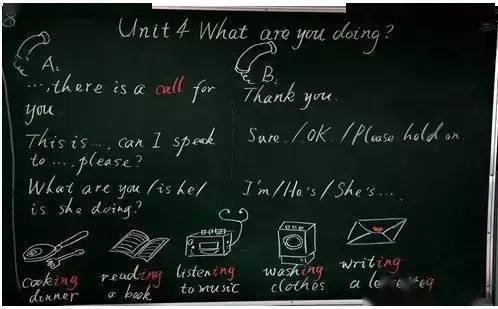 Unit 4 What are you doing?
A:
...., there is a call for
you.
This is ...., can I speak
to ...., please?
What are you/is he/
is she doing?
B:
Thank you.
Sure./OK./Please hold on.
I'm/He's/She's....
cooking
dinner
reading
a book
listening
to music
washing
clothes
writing
a